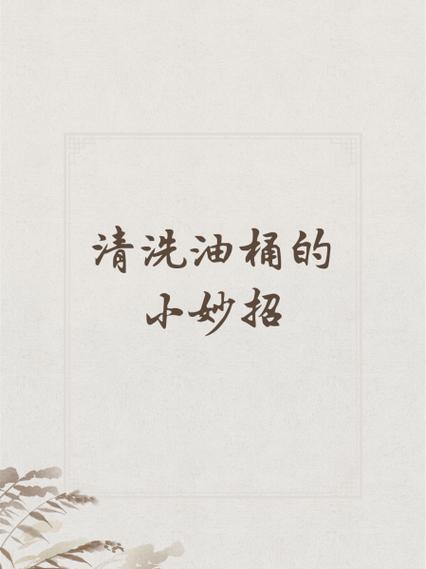 清洗油桶的
小妙招